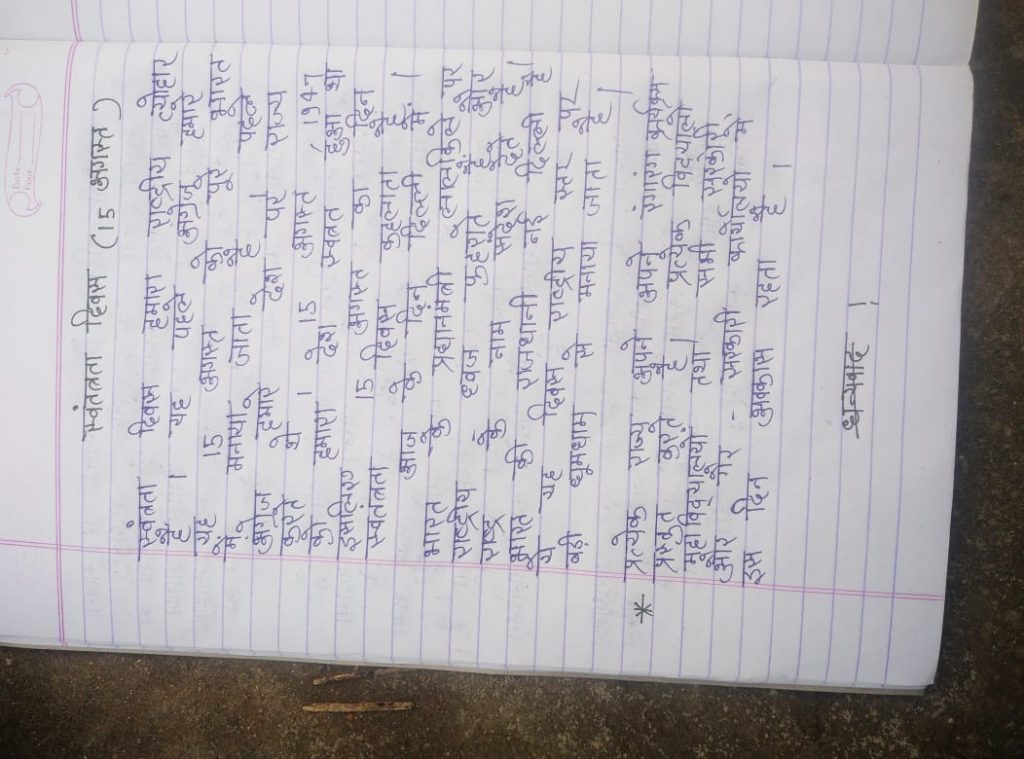 Date
Page
स्वंतत्रता दिवस (15 अगस्त)
स्वंतत्रता दिवस हमारा राष्ट्रीय त्योहार
है । यह पहले अग्रजू हमारे
यह 15 अगस्त को पूरे भारत
में मनाया जाता है । पहले
अग्रेज हमारे देश पर राज्य
करते थे । 15 अगस्त 1947
को हमारा देश स्वतत्र हुआ था
इसलिए 15 अगस्त का दिन
स्वंतत्रता दिवस कहलाता है ।
आज के दिन दिल्ली में
भारत के प्रधानमंत्री लालकिले पर
राष्ट्रीय ध्वज फहराते है और
राष्ट्र के नाम संदेश देते है
भारत की राजधानी नई दिल्ली है।
ये यह दिवस राष्ट्रीय स्तर पर
बड़ी धूमधाम से मनाया जाता है ।
* प्रत्येक राज्य अपने अपने रंगारंग कार्यक्रम
प्रस्तुत करते है। प्रत्येक विद्यालो
महाविद्यालयो तथा सभी सरकारी
और गैर - सरकारी कार्यालयो में
इस दिन अवकास रहता है ।
धन्यवाद ।